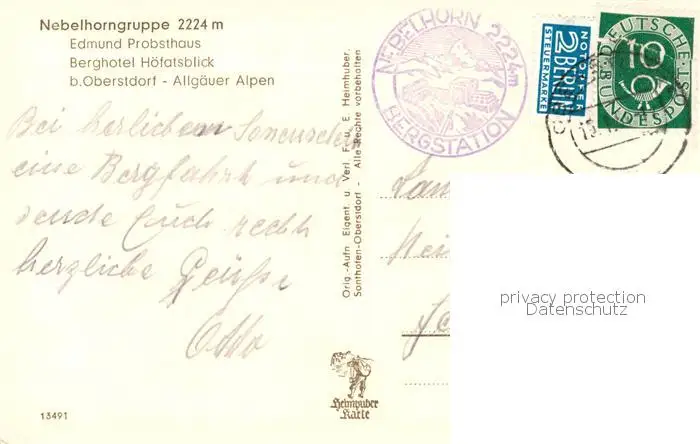 Nebelhorngruppe 2224 m
Edmund Probsthaus
Berghotel Höfatsblick
b.Oberstdorf - Allgäuer Alpen
NEBELHORN 2224m
BERGSTATION
NOTOPFER
2 BERLIN
STEUERMARKE
DEUTSCHE
BUNDESPOST
10
Bei herlichem Sonnenschein
eine Bergfahrt und
sende Euch recht
herzliche Grüße
Otto
Orig.-Aufn Eigent. u. Verl. F. u. E. Heimhuber,
Sonthofen-Oberstdorf - Alle Rechte vorbehalten
Heimhuber
Karte
13491
privacy protection
Datenschutz